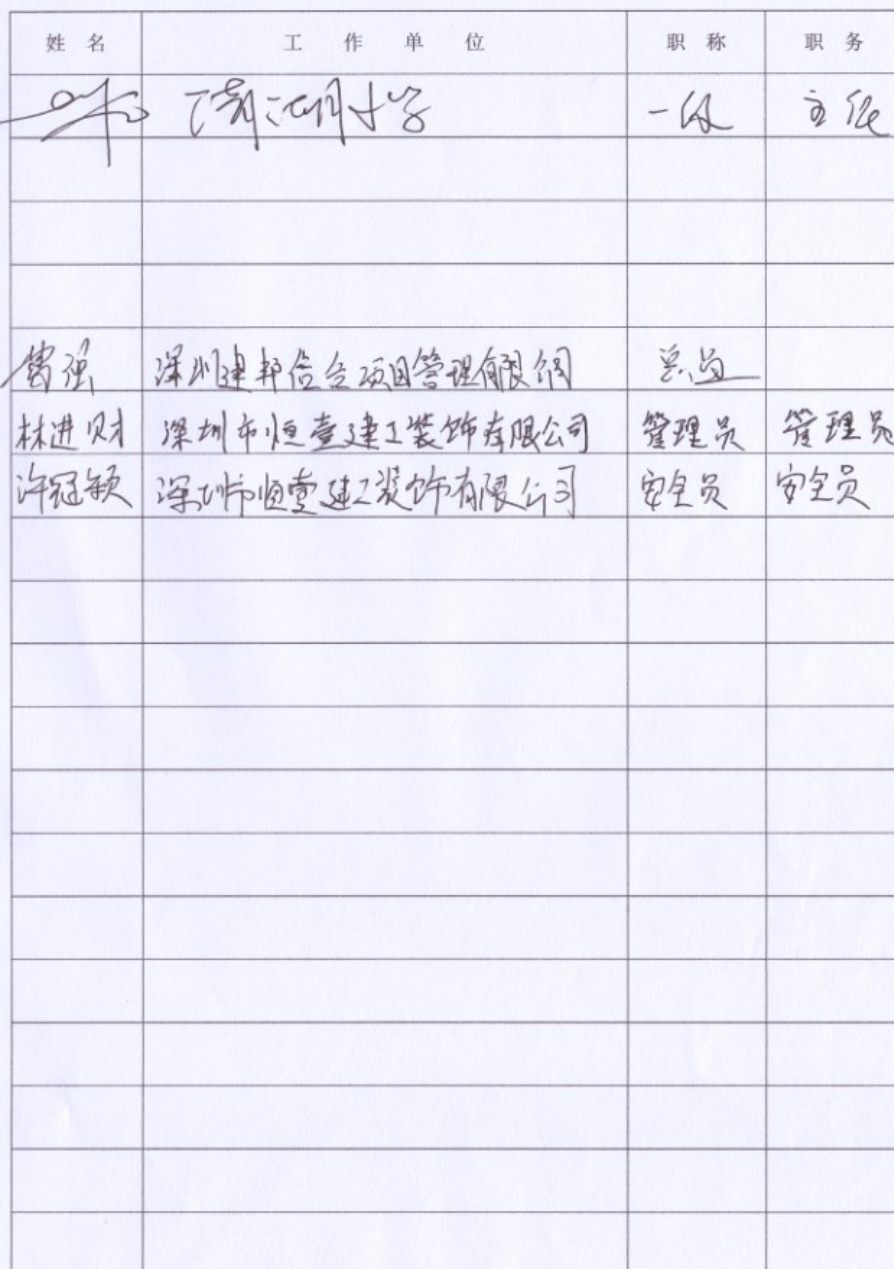 姓名 工作单位 职称 职务
小学 一级 主任
曾强 深圳建邦信合项目管理有限公司 总监
林进财 深圳市恒壹建工装饰有限公司 管理员 管理员
许冠颖 深圳市恒壹建工装饰有限公司 安全员 安全员